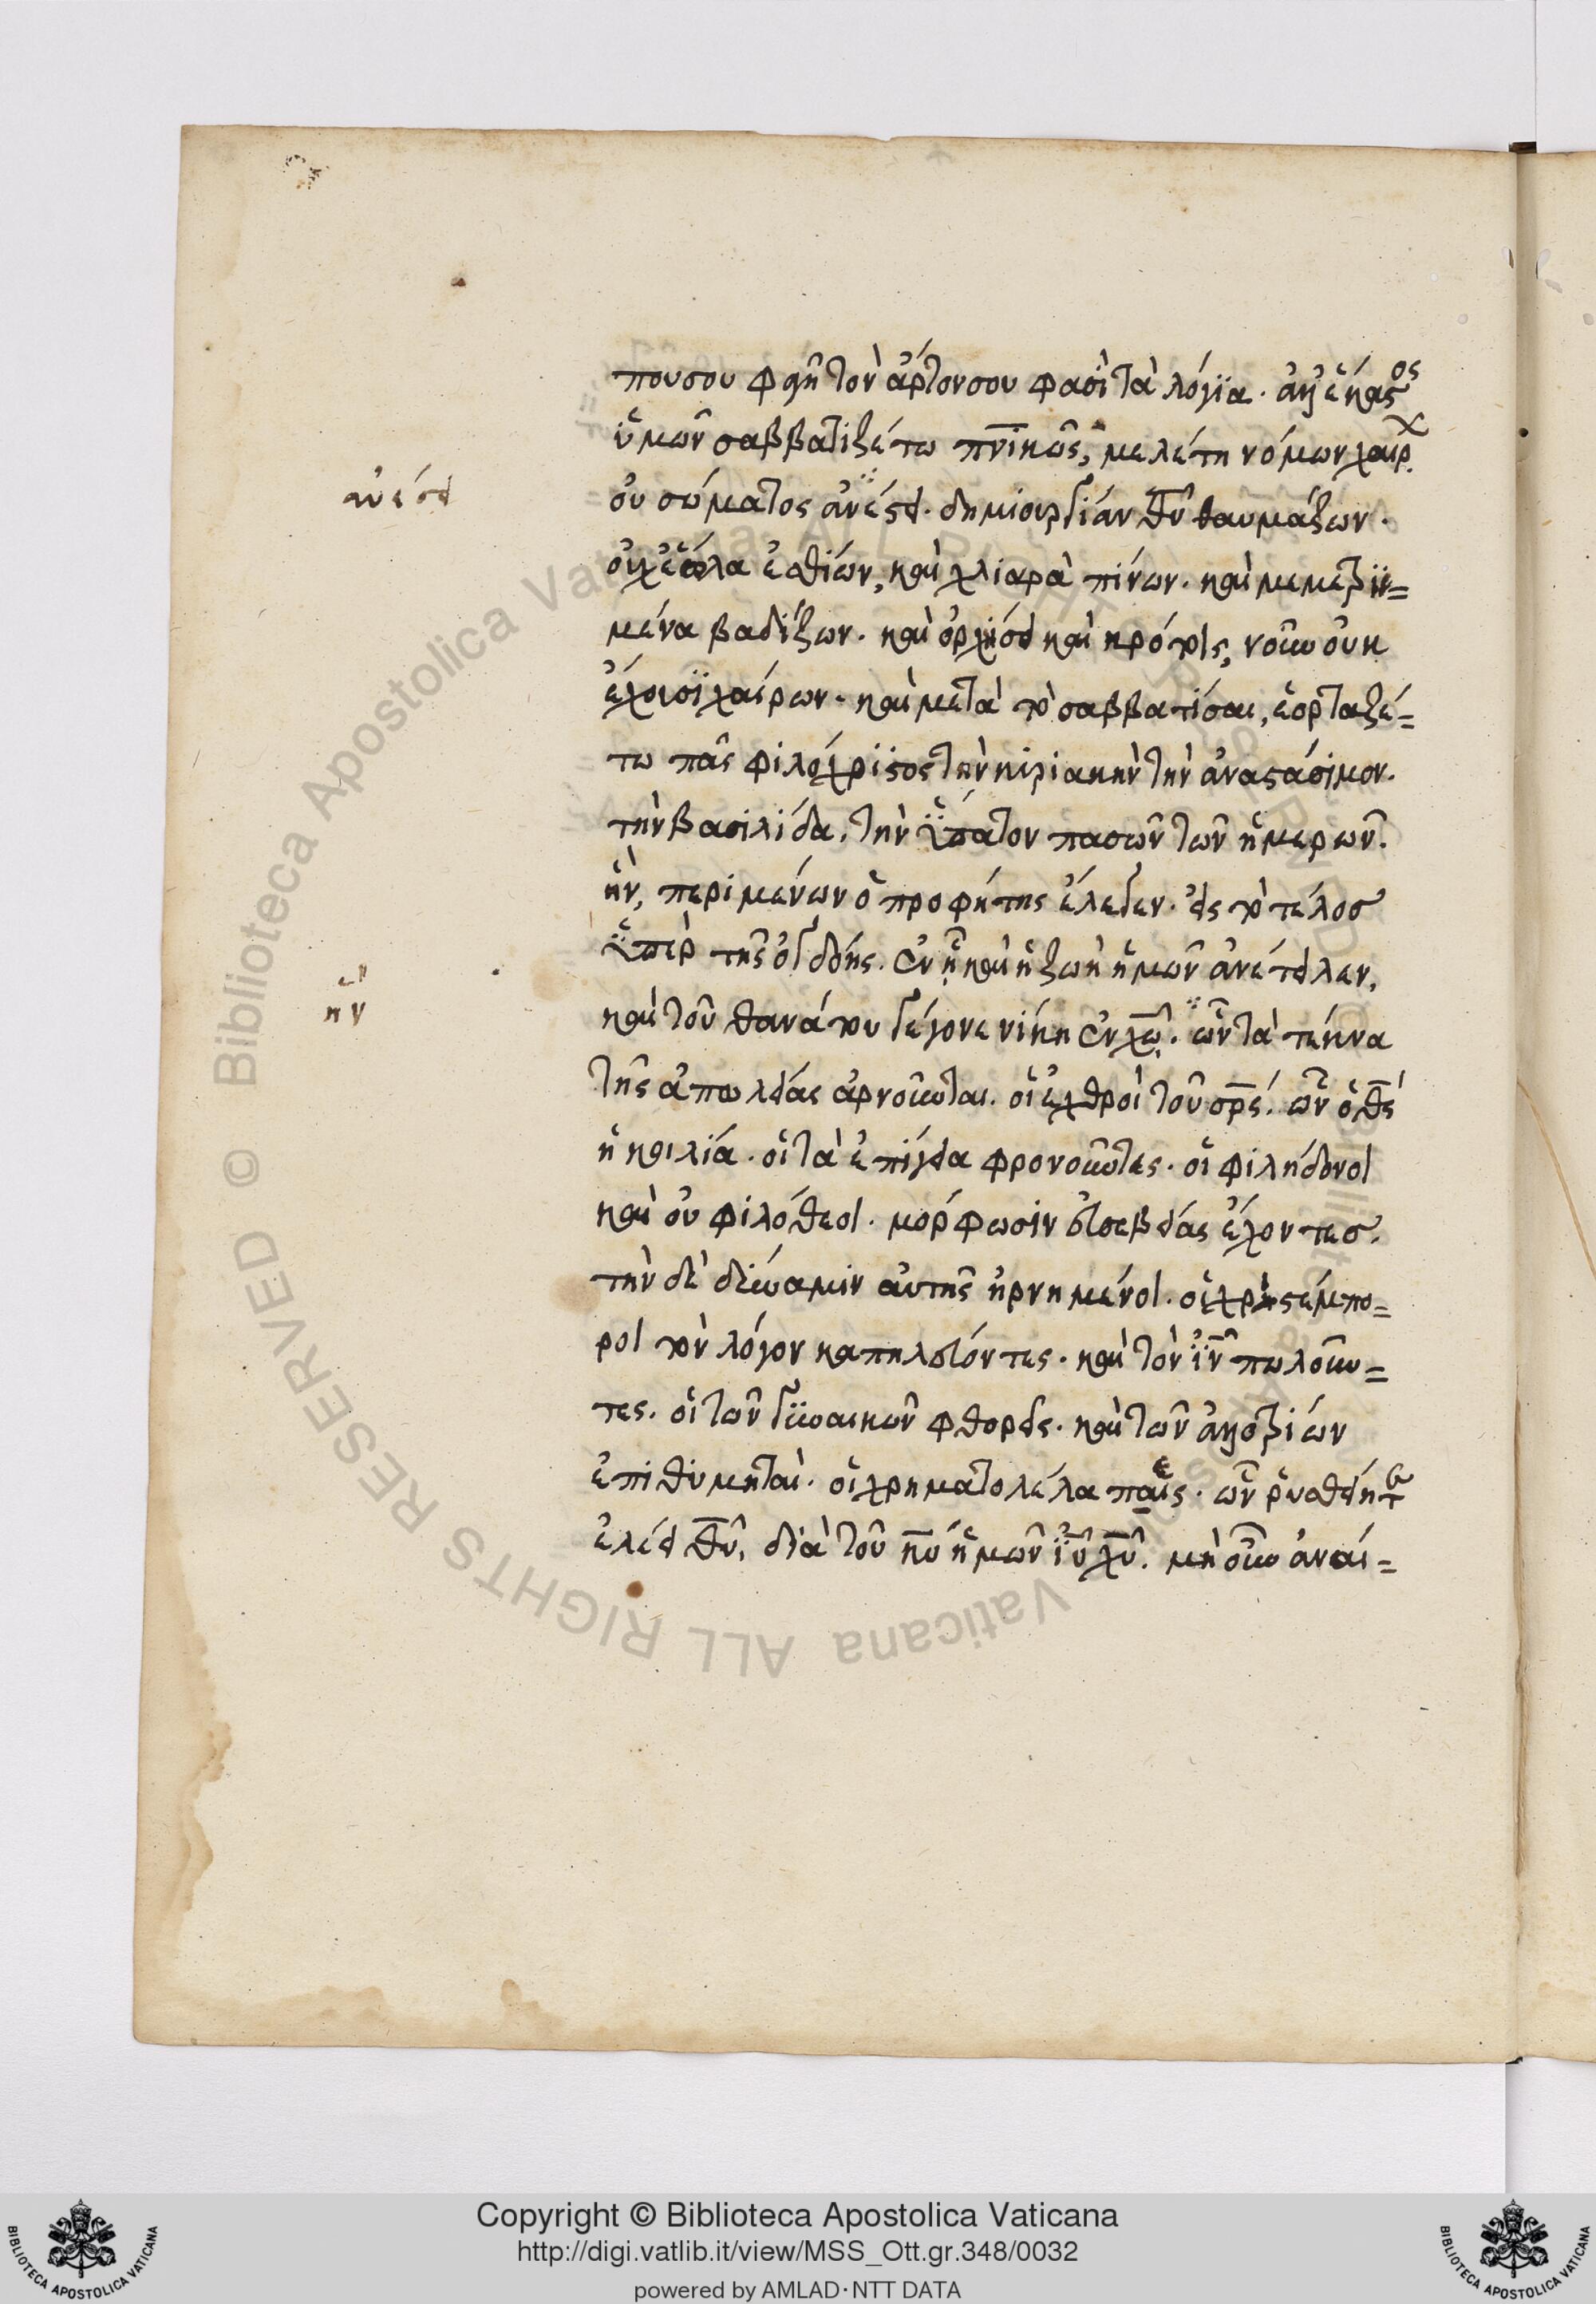 που σου φάγῃ τὸν ἄρτον σου φασὶ τὰ λόγϊα. ἀλλ' ἕκαστος
ὑμῶν σαββατιζέτω πν̅ικῶς, μελέτη νόμων χαίρ.
αὐέσει
οὐ σώματος ἀνέσει. δημιουργίαν θ̅υ θαυμάζων.
οὐχ ἕωλα ἐσθίων, καὶ χλιαρὰ πίνων. καὶ μεμετρη=
μένα βαδίζων. καὶ ὀρχήσει καὶ κρότοις, νοῦν οὐκ
ἔχουσϊ χαίρων. καὶ μετὰ τὸ σαββατίσαι, ἑορταζέ=
τω πᾶς φιλόχριστος τὴν κυριακὴν τὴν ἀναστάσιμον.
τὴν βασιλίδα, τὴν ὕπατον πασῶν τῶν ἡμερῶν.
ἣν, περιμένων ὁ προφήτης ἔλεγεν. εἰς τὸ τέλος
ὑπὲρ τῆς ὀγδόης. ἐν ᾗ καὶ ἡ ζωὴ ἡμῶν ἀνέτειλεν,
καὶ τοῦ θανάτου γέγονε νίκη ἐν χ̅ω. ὧν τὰ τέκνα
τῆς ἀπωλείας ἀρνοῦνται. οἱ ἐχθροὶ τοῦ σ̅ρς. ὧν ὁ θ̅ς
ἡ κοιλία. οἱ τὰ ἐπίγεια φρονοῦντες. οἱ φιλήδονοι
καὶ οὐ φιλόθεοι. μόρφωσιν εὐσεβείας ἔχοντες.
τὴν δὲ δύναμιν αὐτῆς ἠρνημένοι. οἱ χριστέμπο=
ροι τὸν λόγον καπηλεύοντες. καὶ τὸν ἰ̅ν πωλοῦν=
τες. οἱ τῶν γυναικῶν φθορεῖς. καὶ τῶν ἀλλοτρίων
ἐπιθυμηταί. οἱ χρηματολαίλαπες. ὧν ῥυσθείητε
ἐλέει θ̅υ, διὰ τοῦ κ̅υ ἡμῶν ἰ̅υ χ̅υ. μὴ οὖν ἀναί=
Copyright © Biblioteca Apostolica Vaticana
http://digi.vatlib.it/view/MSS_Ott.gr.348/0032
powered by AMLAD·NTT DATA